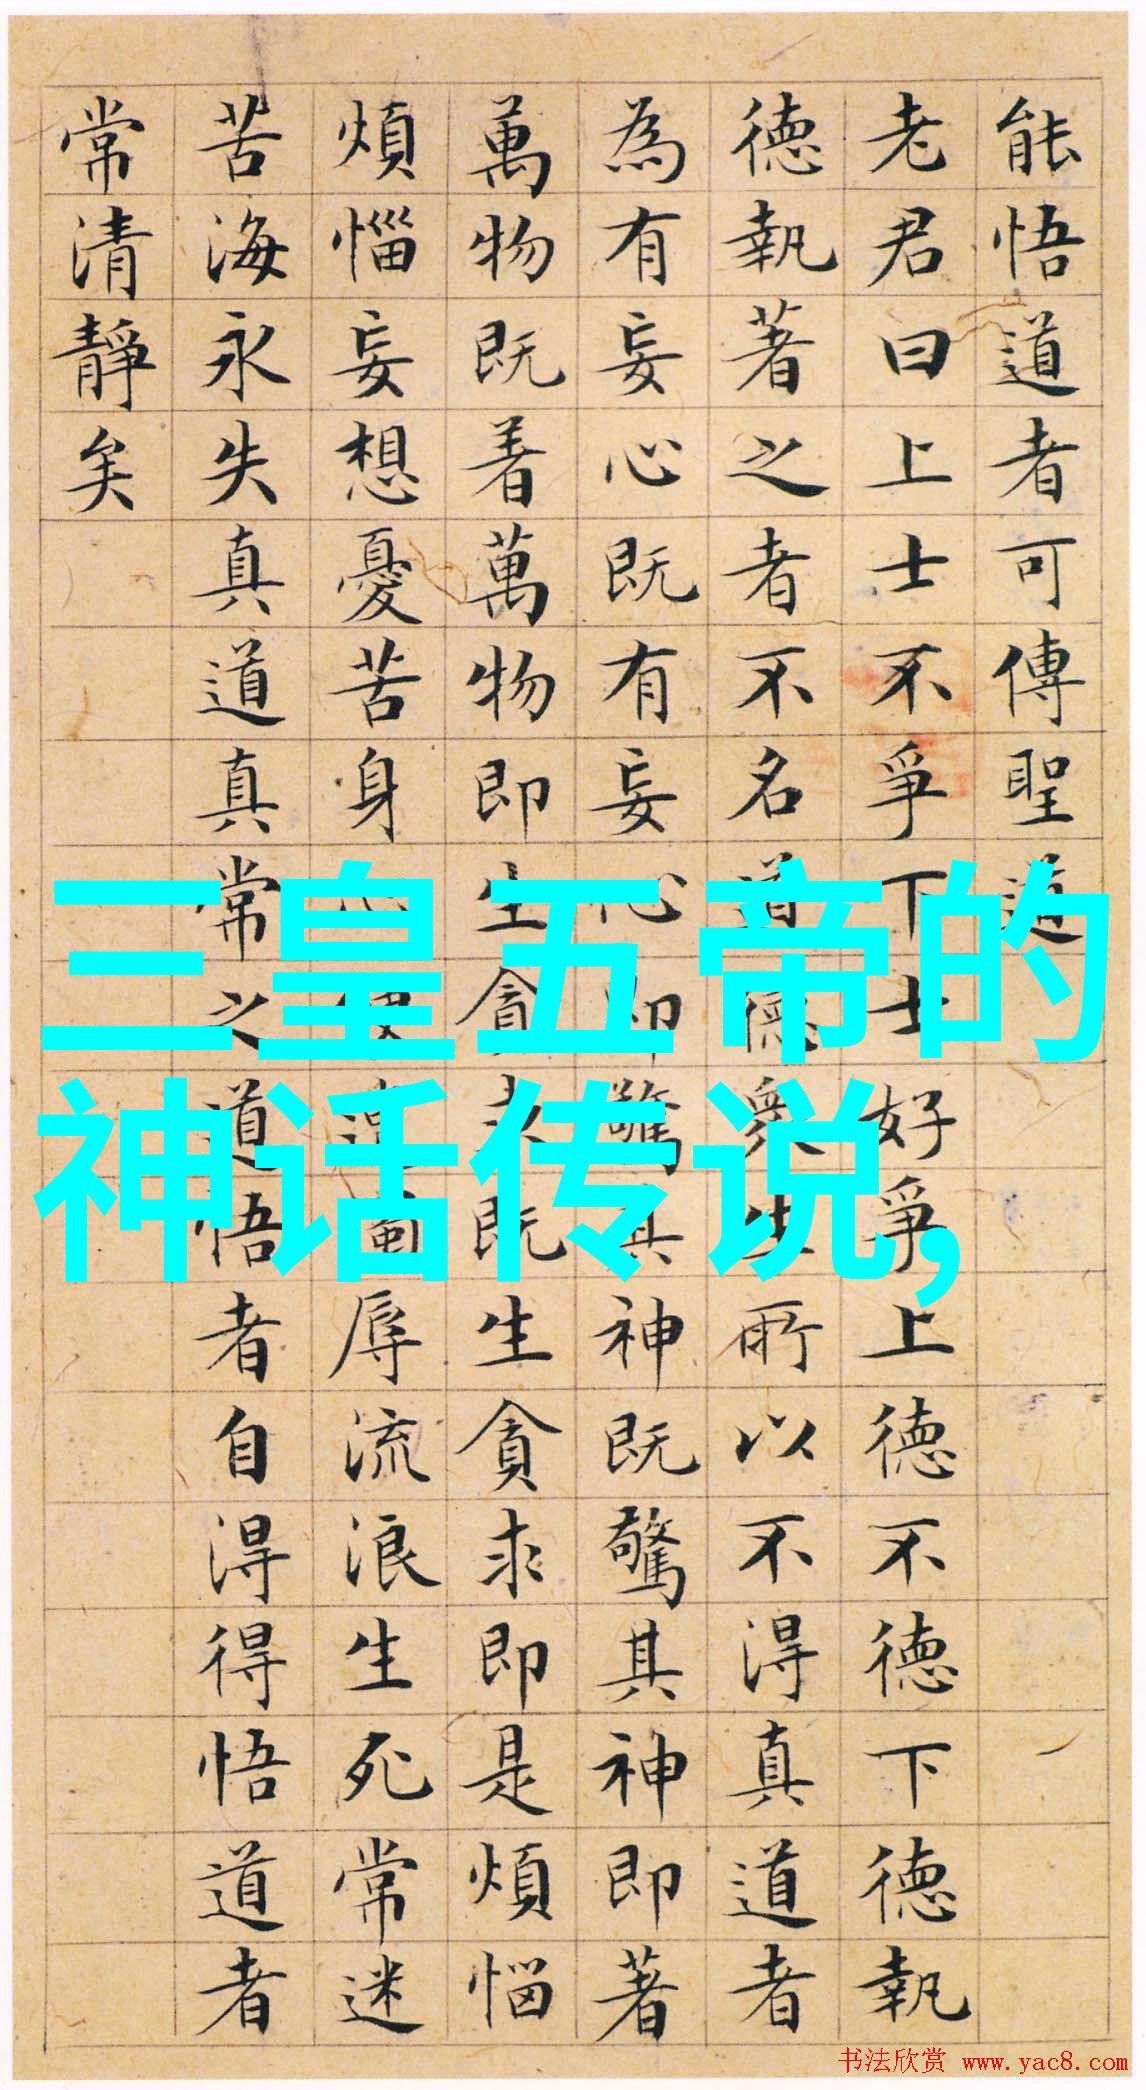 能悟道者可傳聖道
老君曰上士不爭下士好爭上德不德下德執
德執著之者不名道德衆生所以不得真道者
為有妄心既有妄心即驚其神既驚其神即著
萬物既着萬物即生貪求既生貪求即是煩惱
煩惱妄想憂苦身心便遭濁辱流浪生死常迷
苦海永失真道真常之道悟者自得得悟道者
常清靜矣
三皇五帝的
神话传说,
书法欣赏 www.yac8.com